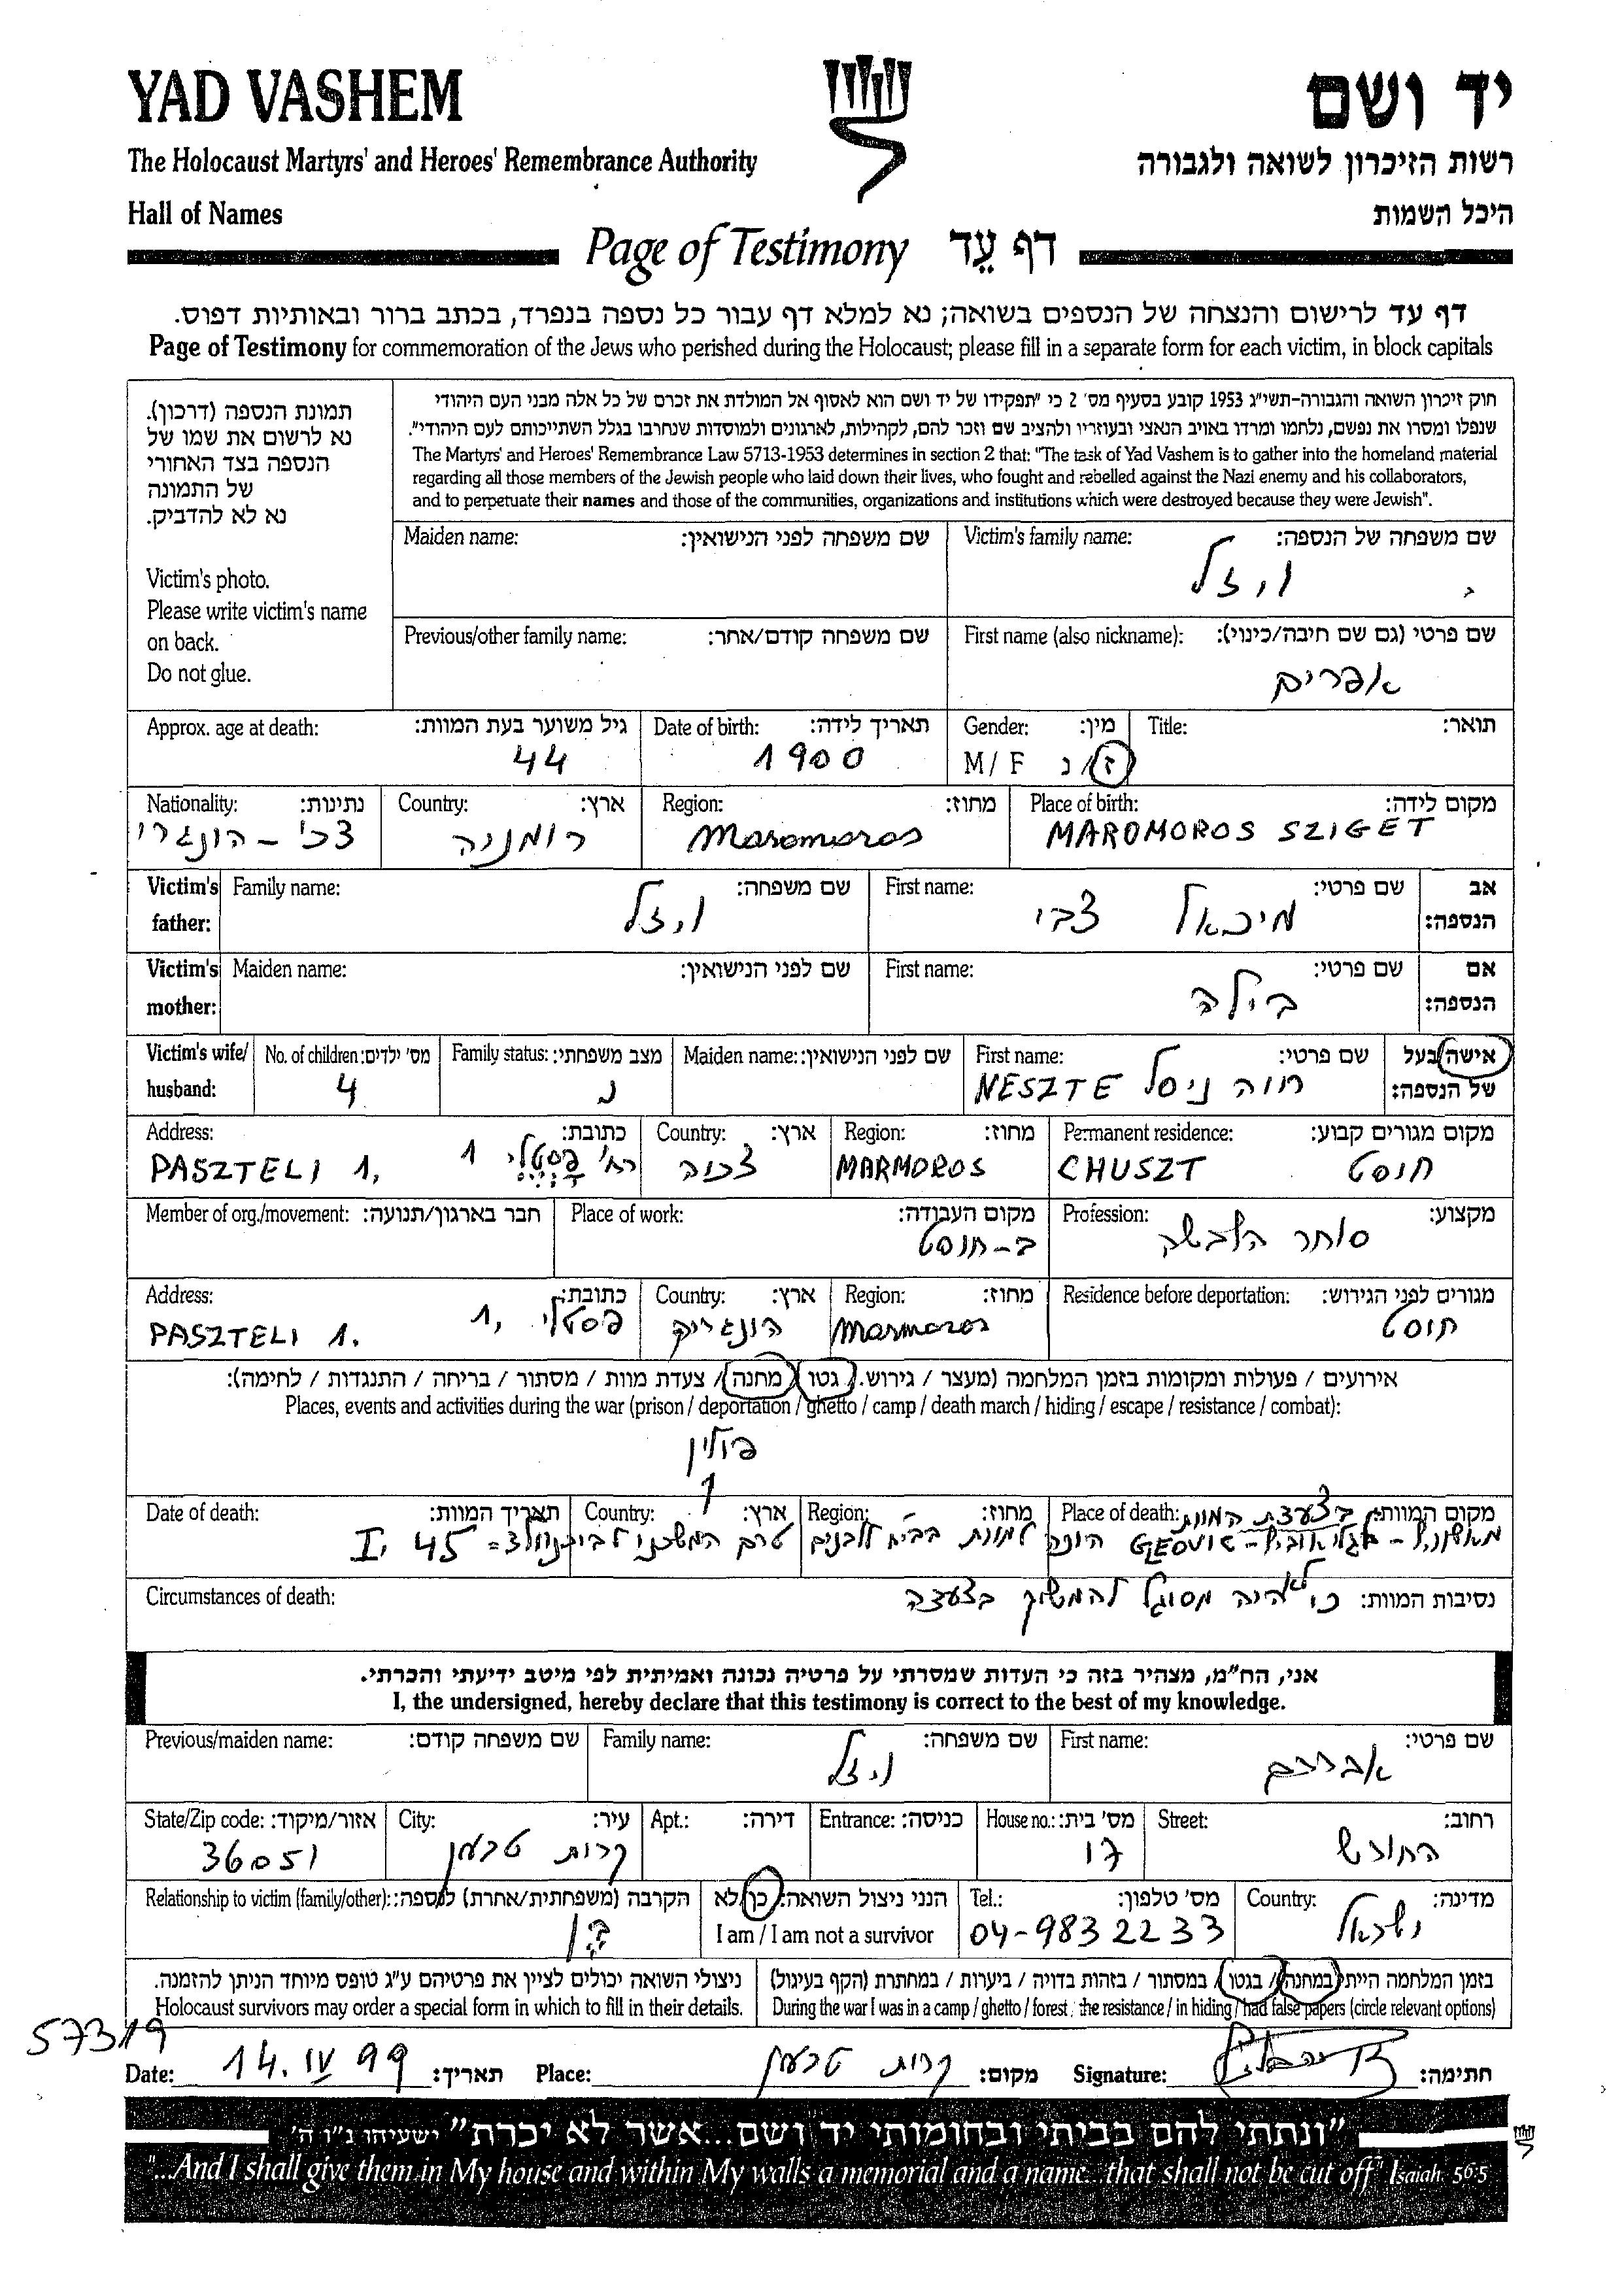 YAD VASHEM
יד ושם
The Holocaust Martyrs' and Heroes' Remembrance Authority
רשות הזיכרון לשואה ולגבורה
Hall of Names
היכל השמות
Page of Testimony דף עֵד
דף עד לרישום והנצחה של הנספים בשואה; נא למלא דף עבור כל נספה בנפרד, בכתב ברור ובאותיות דפוס.
Page of Testimony for commemoration of the Jews who perished during the Holocaust; please fill in a separate form for each victim, in block capitals
תמונת הנספה (דרכון).
נא לרשום את שמו של
הנספה בצד האחורי
של התמונה
נא לא להדביק.
Victim's photo.
Please write victim's name
on back.
Do not glue.
חוק זיכרון השואה והגבורה-תשי"ג 1953 קובע בסעיף מס' 2 כי "תפקידו של יד ושם הוא לאסוף אל המולדת את זכרם של כל אלה מבני העם היהודי
שנפלו ומסרו את נפשם, נלחמו ומרדו באויב הנאצי ובעוזריו ולהציב שם וזכר להם, לקהילות, לארגונים ולמוסדות שנחרבו בגלל השתייכותם לעם היהודי".
The Martyrs' and Heroes' Remembrance Law 5713-1953 determines in section 2 that: "The task of Yad Vashem is to gather into the homeland material
regarding all those members of the Jewish people who laid down their lives, who fought and rebelled against the Nazi enemy and his collaborators,
and to perpetuate their names and those of the communities, organizations and institutions which were destroyed because they were Jewish".
Maiden name: שם משפחה לפני הנישואין: Victim's family name: שם משפחה של הנספה:
ויזל
Previous/other family name: שם משפחה קודם/אחר: First name (also nickname): שם פרטי (גם שם חיבה/כינוי):
אפרים
Approx. age at death: גיל משוער בעת המוות: Date of birth: תאריך לידה: Gender: מין: Title: תואר:
44 1900 M / F ז/נ
Nationality: נתינות: Country: ארץ: Region: מחוז: Place of birth: מקום לידה:
צכי - הונגרי רומניה Maromoros MAROMOROS SZIGET
Victim's father: Family name: שם משפחה: First name: שם פרטי: אב הנספה:
ויזל מיכאל צבי
Victim's mother: Maiden name: שם לפני הנישואין: First name: שם פרטי: אם הנספה:
בילה
Victim's wife/ husband: No. of children: מס' ילדים: Family status: מצב משפחתי: Maiden name: שם לפני הנישואין: First name: שם פרטי: אישה/בעל של הנספה:
4 נ NESZTE חוה ניסל
Address: כתובת: Country: ארץ: Region: מחוז: Permanent residence: מקום מגורים קבוע:
PASZTELI 1, רח' פסטלי 1 צכיה MARMOROS CHUSZT חוסט
Member of org./movement: חבר בארגון/תנועה: Place of work: מקום העבודה: Profession: מקצוע:
ב-חוסט סוחר הלבשה
Address: כתובת: Country: ארץ: Region: מחוז: Residence before deportation: מגורים לפני הגירוש:
PASZTELI 1. פסטלי 1, הונגריה Marmoros חוסט
אירועים / פעולות ומקומות בזמן המלחמה (מעצר / גירוש / גטו / מחנה / צעדת מוות / מסתור / בריחה / התנגדות / לחימה):
Places, events and activities during the war (prison / deportation / ghetto / camp / death march / hiding / escape / resistance / combat):
פולין
Date of death: תאריך המוות: Country: ארץ: Region: מחוז: Place of death: מקום המוות: בצעדת המוות
I, 45 טרם המשכנו הונח למות בבית לבנים
Circumstances of death: נסיבות המוות: כי לא היה מסוגל להמשיך בצעדה
אני, הח"מ, מצהיר בזה כי העדות שמסרתי על פרטיה נכונה ואמיתית לפי מיטב ידיעתי והכרתי.
I, the undersigned, hereby declare that this testimony is correct to the best of my knowledge.
Previous/maiden name: שם משפחה קודם: Family name: שם משפחה: First name: שם פרטי:
ויזל אברהם
State/Zip code: אזור/מיקוד: City: עיר: Apt.: דירה: Entrance: כניסה: House no.: מס' בית: Street: רחוב:
36051 קרית טבעון 17 החורש
Relationship to victim (family/other): הקרבה (משפחתית/אחרת) לנספה: הנני ניצול השואה: כן/לא Tel.: מס' טלפון: Country: מדינה:
בן I am / I am not a survivor 04-9832233 ישראל
ניצולי השואה יכולים לציין את פרטיהם ע"ג טופס מיוחד הניתן להזמנה. בזמן המלחמה הייתי במחנה / בגטו / במסתור / בזהות בדויה / ביערות / במחתרת (הקף בעיגול)
Holocaust survivors may order a special form in which to fill in their details. During the war I was in a camp / ghetto / forest / the resistance / in hiding / had false papers (circle relevant options)
57319
Date: 14. IV 99 תאריך: Place: קרית טבעון מקום: Signature: חתימה:
"ונתתי להם בביתי ובחומותי יד ושם...אשר לא יכרת" ישעיהו נ"ו ה'
"...And I shall give them in My house and within My walls a memorial and a name...that shall not be cut off" Isaiah 56:5